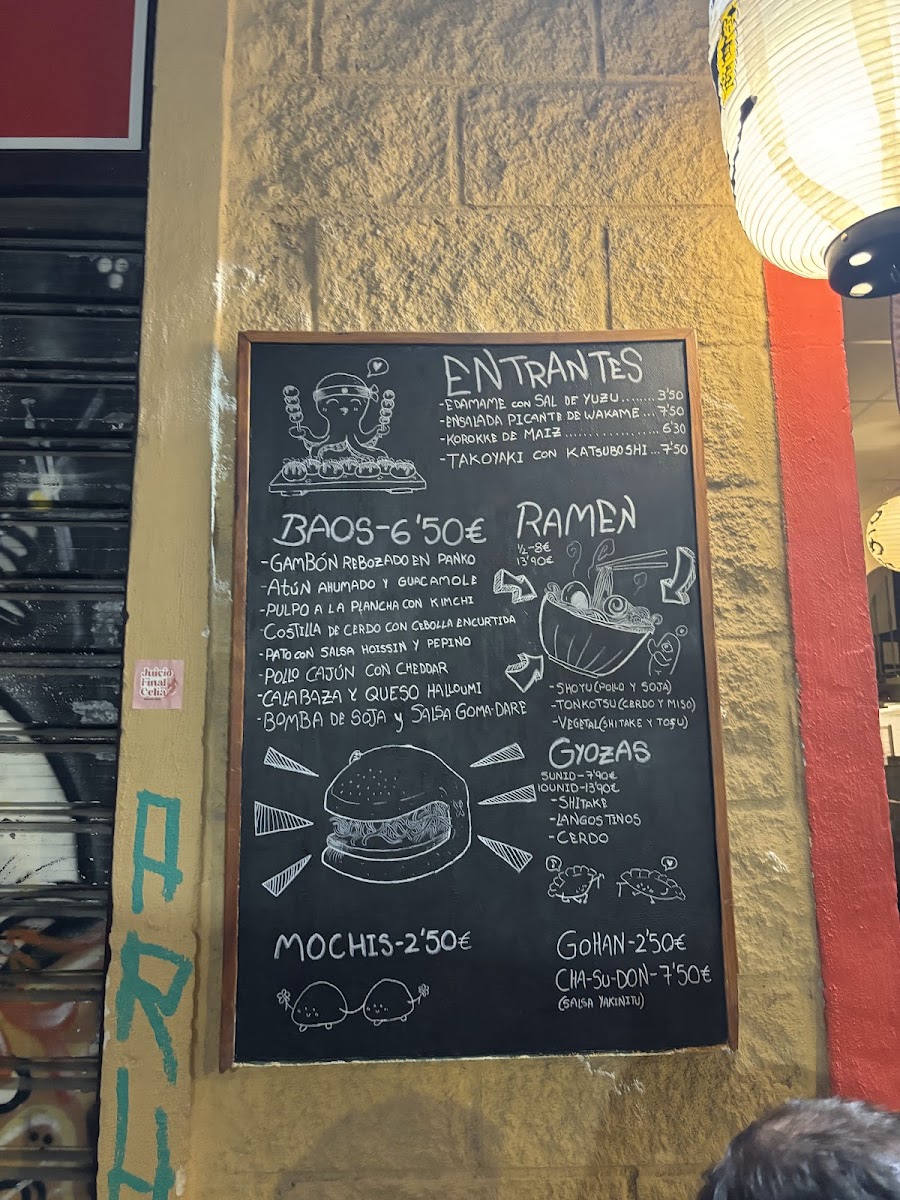 ENTRANTES
-EDAMAME CON SAL DE YUZU........3'50
-ENSALADA PICANTE DE WAKAME...7'50
-KOROKKE DE MAIZ..................6'30
-TAKOYAKI CON KATSUBOSHI...7'50
BAOS-6'50€
-GAMBÓN REBOZADO EN PANKO
-ATÚN AHUMADO Y GUACAMOLE
-PULPO A LA PLANCHA CON KIMCHI
-COSTILLA DE CERDO CON CEBOLLA ENCURTIDA
-PATO CON SALSA HOISSIN Y PEPINO
-POLLO CAJÚN CON CHEDDAR
-CALABAZA Y QUESO HALLOUMI
-BOMBA DE SOJA Y SALSA GOMA-DARE
RAMEN
½-8€
13'90€
-SHOYU(POLLO Y SOJA)
-TONKOTSU(CERDO Y MISO)
-VEGETAL(SHITAKE Y TOFU)
GYOZAS
5UNID-7'90€
10UNID-13'90€
-SHITAKE
-LANGOSTINOS
-CERDO
MOCHIS-2'50€
GOHAN-2'50€
CHA-SU-DON-7'50€
(SALSA YAKINITU)
Juicio
Final
Celia
ARU